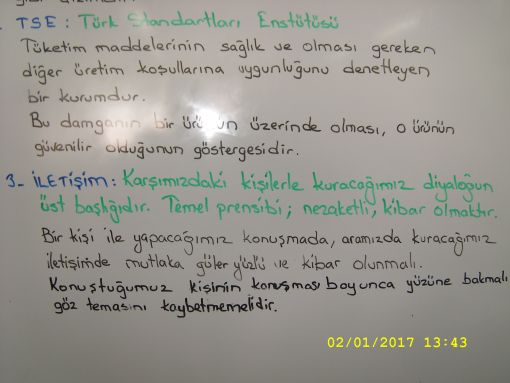 TSE : Türk Standartları Enstütüsü
Tüketim maddelerinin sağlık ve olması gereken
diğer üretim koşullarına uygunluğunu denetleyen
bir kurumdur.
Bu damganın bir ürünün üzerinde olması, o ürünün
güvenilir olduğunun göstergesidir.
3- İLETİŞİM: Karşımızdaki kişilerle kuracağımız diyaloğun
üst başlığıdır. Temel prensibi; nezaketli, kibar olmaktır.
Bir kişi ile yapacağımız konuşmada, aramızda kuracağımız
iletişimde mutlaka güler yüzlü ve kibar olunmalı.
Konuştuğumuz kişinin konuşması boyunca yüzüne bakmalı
göz temasını kaybetmemelidir.
02/01/2017 13:43